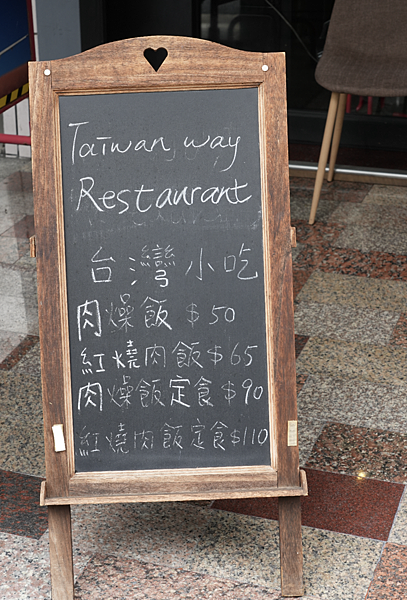 Taiwan way
Restaurant
台灣小吃
肉燥飯 $50
紅燒肉飯 $65
肉燥飯定食 $90
紅燒肉飯定食 $110